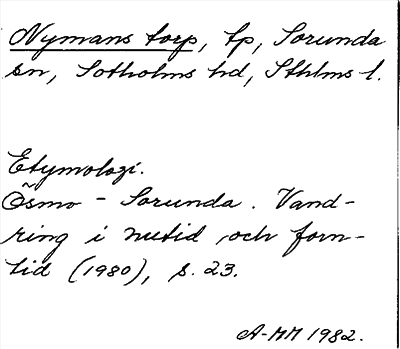 Nymans torp, tp, Sorunda
sn, Sotholms hd, Sthlms l.
Etymologi.
Ösmo - Sorunda. Vand-
ring i nutid och forn-
tid (1980), s. 23.
A-MM 1982.